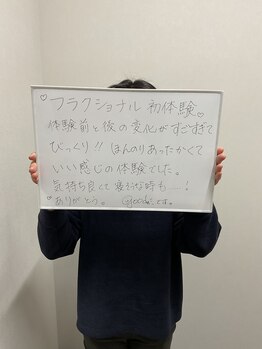 ♡フラクショナル 初体験♡
体験前と後の変化がすごすぎて
びっくり!! ほんのりあったかくて
いい感じの体験でした。
気持ち良くて 寝そうな時も……!
♡ありがとう。 です。